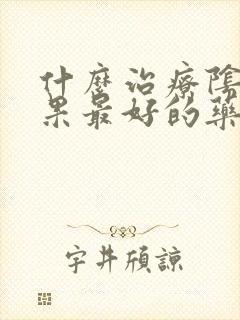 什麼治療陰
果最好的藥
宇井頎諒